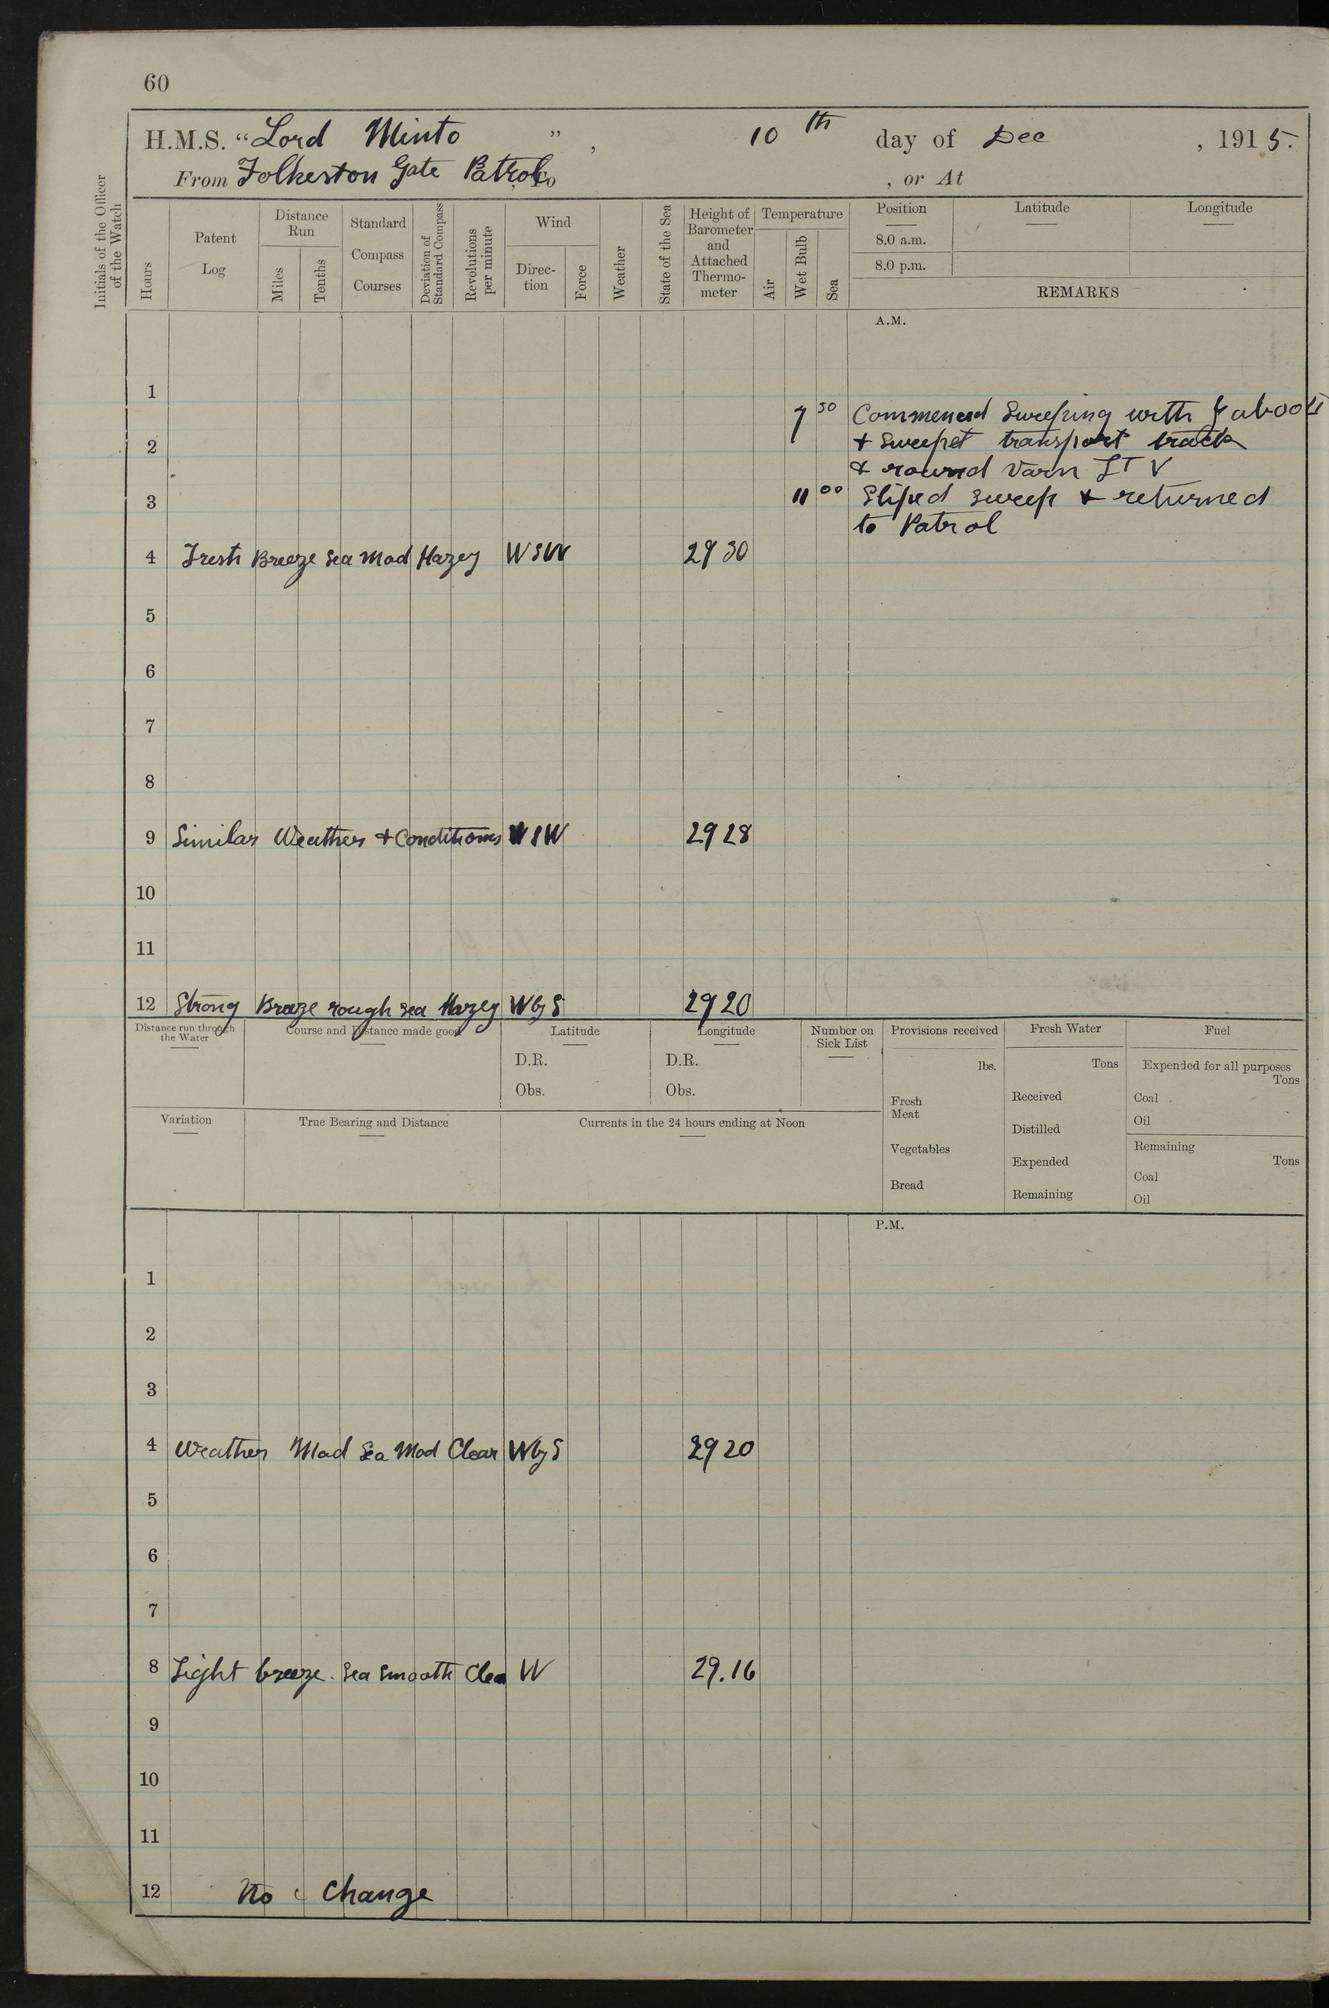 60
H.M.S. “Lord Minto ” , 10th day of Dec , 1915.
From Folkeston Gate Patrol To , or At
Initials of the Officer of the Watch
Hours
Patent Log
Distance Run
Miles
Tenths
Standard Compass Courses
Deviation of Standard Compass
Revolutions per minute
Wind
Direction
Force
Weather
State of the Sea
Height of Barometer and Attached Thermometer
Temperature
Air
Wet Bulb
Sea
Position Latitude Longitude
8.0 a.m.
8.0 p.m.
REMARKS
A.M.
1
7 30 Commenced Sweeping with
2 + Sweepet transport track
& round Varn LT V
3 11 00 Sliped Sweep & returned
to Patrol
4 Fresh Breeze Sea Mod Hazey WSW 29 30
5
6
7
8
9 Similar Weather + Conditions WSW 29 28
10
11
12 Strong Breeze rough sea Hazey W by S 29 20
Distance run through the Water
Course and Distance made good
Latitude
D.R.
Obs.
Longitude
D.R.
Obs.
Number on Sick List
Provisions received
lbs.
Fresh Meat
Vegetables
Bread
Fresh Water
Tons
Received
Distilled
Expended
Remaining
Fuel
Expended for all purposes
Tons
Coal
Oil
Remaining
Tons
Coal
Oil
Variation
True Bearing and Distance
Currents in the 24 hours ending at Noon
P.M.
1
2
3
4 Weather Mod Sea Mod Clear W by S 29 20
5
6
7
8 Light breeze. Sea Smooth Clea W 29.16
9
10
11
12 No Change